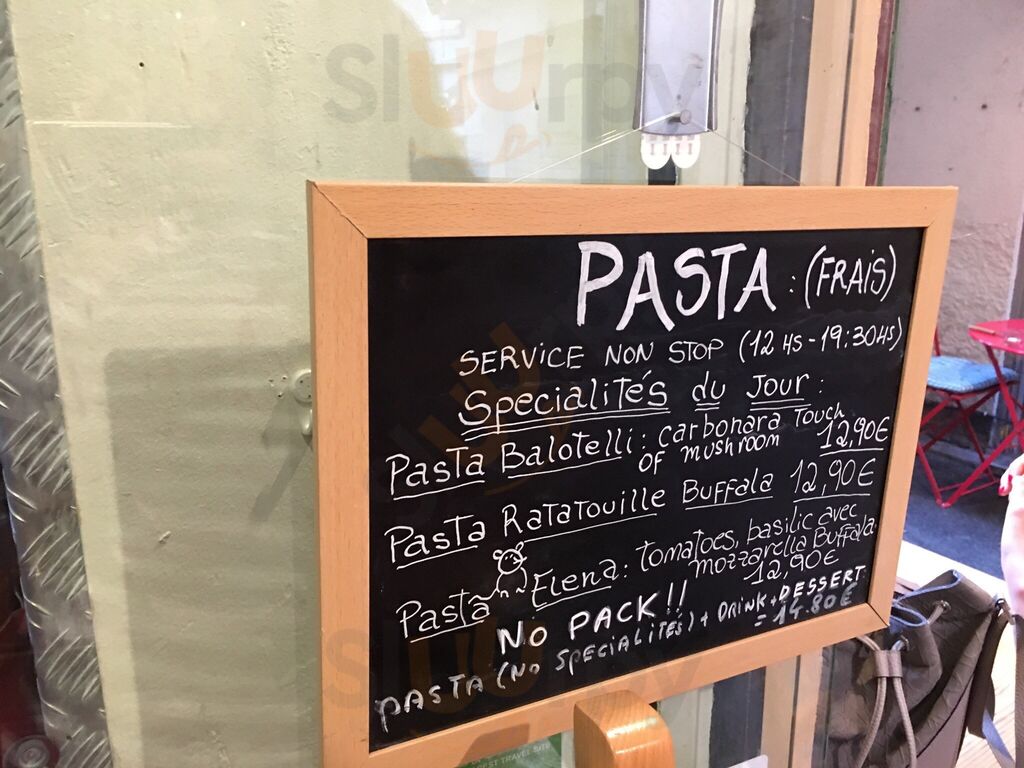 Sluurpy
PASTA : (FRAIS)
SERVICE NON STOP (12 HS - 19:30HS)
Specialités du Jour :
Pasta Balotelli : carbonara touch
of mushroom 12,90€
Pasta Ratatouille Buffala 12,90€
Pasta Elena : tomatoes, basilic avec
mozzarella Buffala
12,90€
NO PACK!!
PASTA (NO SPECIALITÉS) + DRINK + DESSERT
= 14.80€
Sluurpy
EST TRAVEL SITE